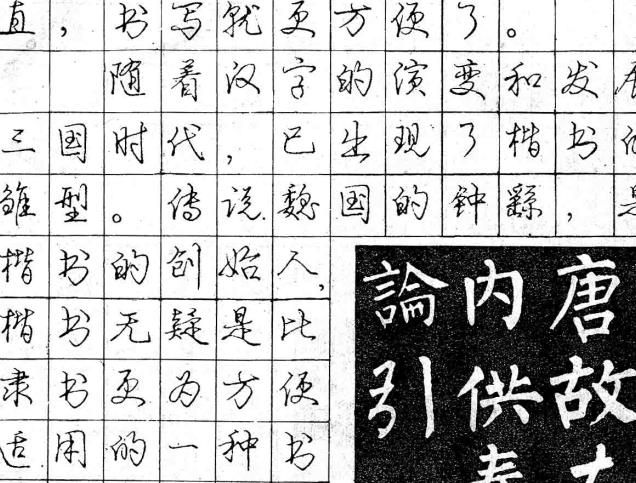 直，书写就更方便了。
随着汉字的演变和发展
三国时代，已出现了楷书的
雏型。传说魏国的钟繇，是
楷书的创始人，
楷书无疑是比
隶书更为方便
适用的一种书
唐故
内供奉
論引